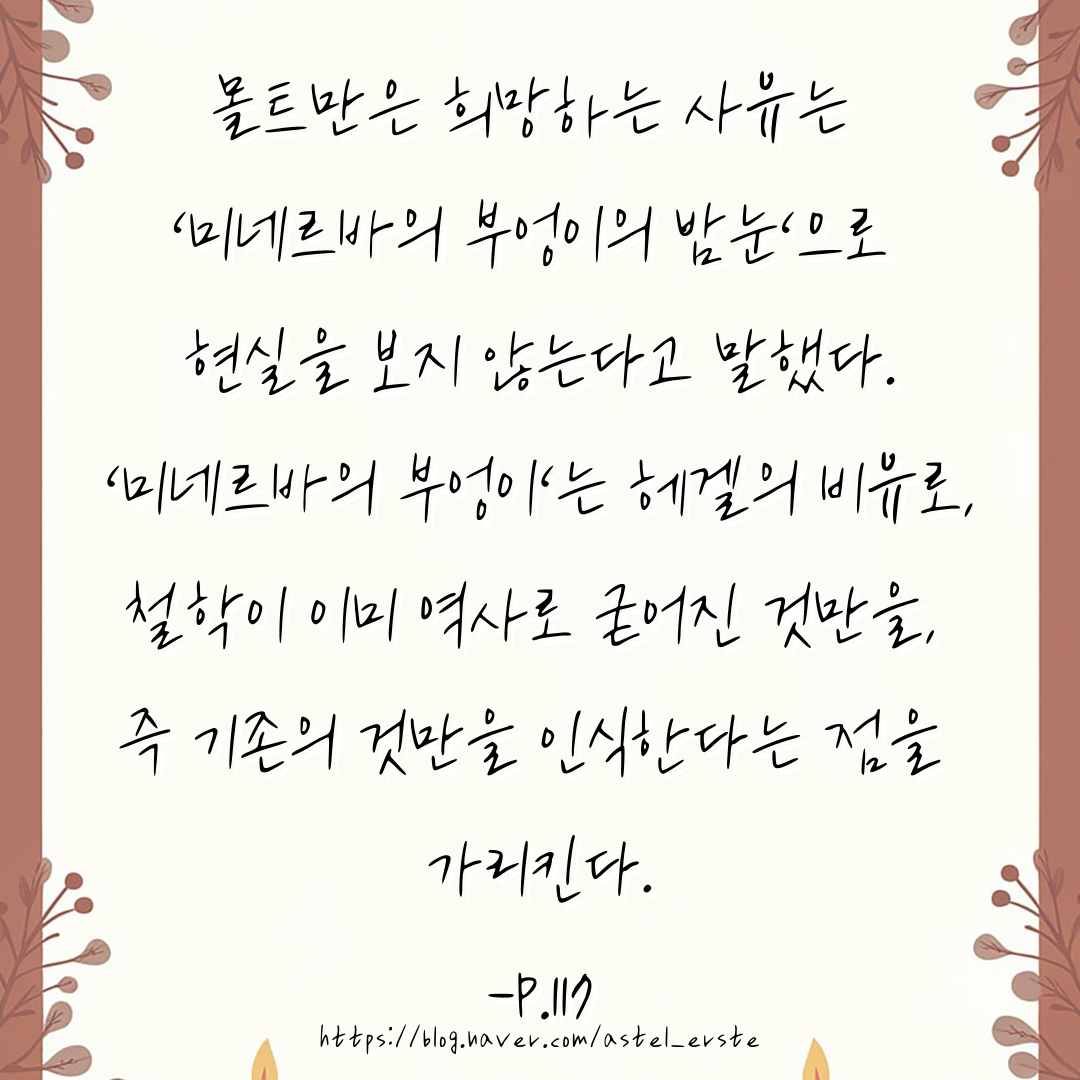 몰트만은 희망하는 사유는
‘미네르바의 부엉이의 밤눈‘으로
현실을 보지 않는다고 말했다.
‘미네르바의 부엉이‘는 헤겔의 비유로,
철학이 이미 역사로 굳어진 것만을,
즉 기존의 것만을 인식한다는 점을
가리킨다.
-P.117
https://blog.naver.com/astel_erste